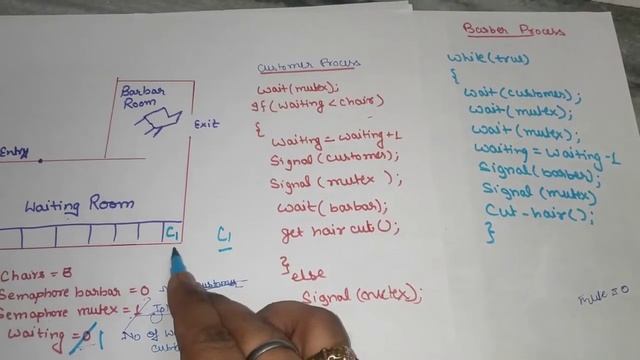 Barber Process
Customer Process
while(true)
{
wait(customer);
wait(mutex);
wait(mutex);
waiting = waiting-1
Signal(barber);
Signal(mutex)
Cut-hair();
}
wait(mutex);
If(waiting < chair)
{
waiting = waiting+1
Signal(customer);
Signal(mutex);
wait(barbar);
get hair cut();
}
else
Signal(mutex);
Barbar
Room
Exit
Entry
Waiting Room
C1
C1
Chairs = 8
Semaphore barbar = 0
Semaphore mutex = 1
Waiting = 0 1
No of